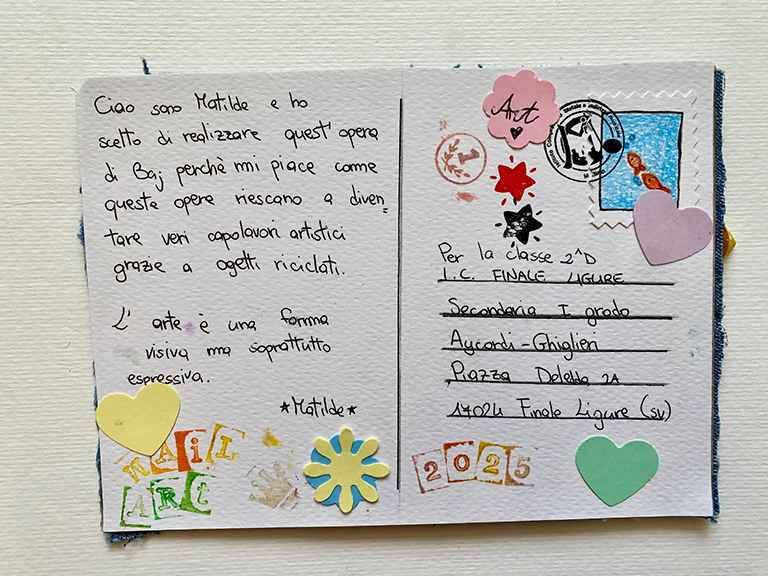 Ciao sono Matilde e ho
scelto di realizzare quest' opera
di Baj perchè mi piace come
queste opere riescano a diven=
tare veri capolavori artistici
grazie a ogetti riciclati.
L' arte è una forma
visiva ma soprattutto
espressiva.
*Matilde*
MAiL
ARt
Art
Per la classe 2^D
I.C. FINALE LIGURE
Secondaria I grado
Aycardi-Ghiglieri
Piazza Deledda 2A
17024 Finale Ligure (SV)
2025